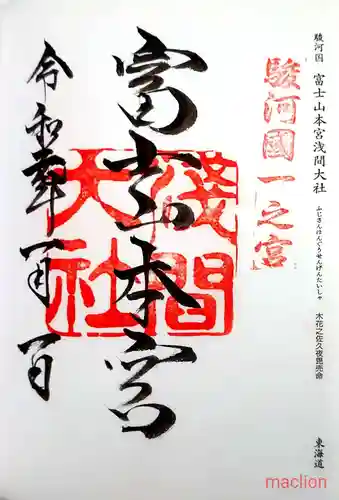 駿河国 富士山本宮浅間大社
ふじさんほんぐうせんげんたいしゃ
木花之佐久夜毘売命
東海道
駿河國一之宮
富士山本宮
淺間
大社
令和
年一月一日
maclion